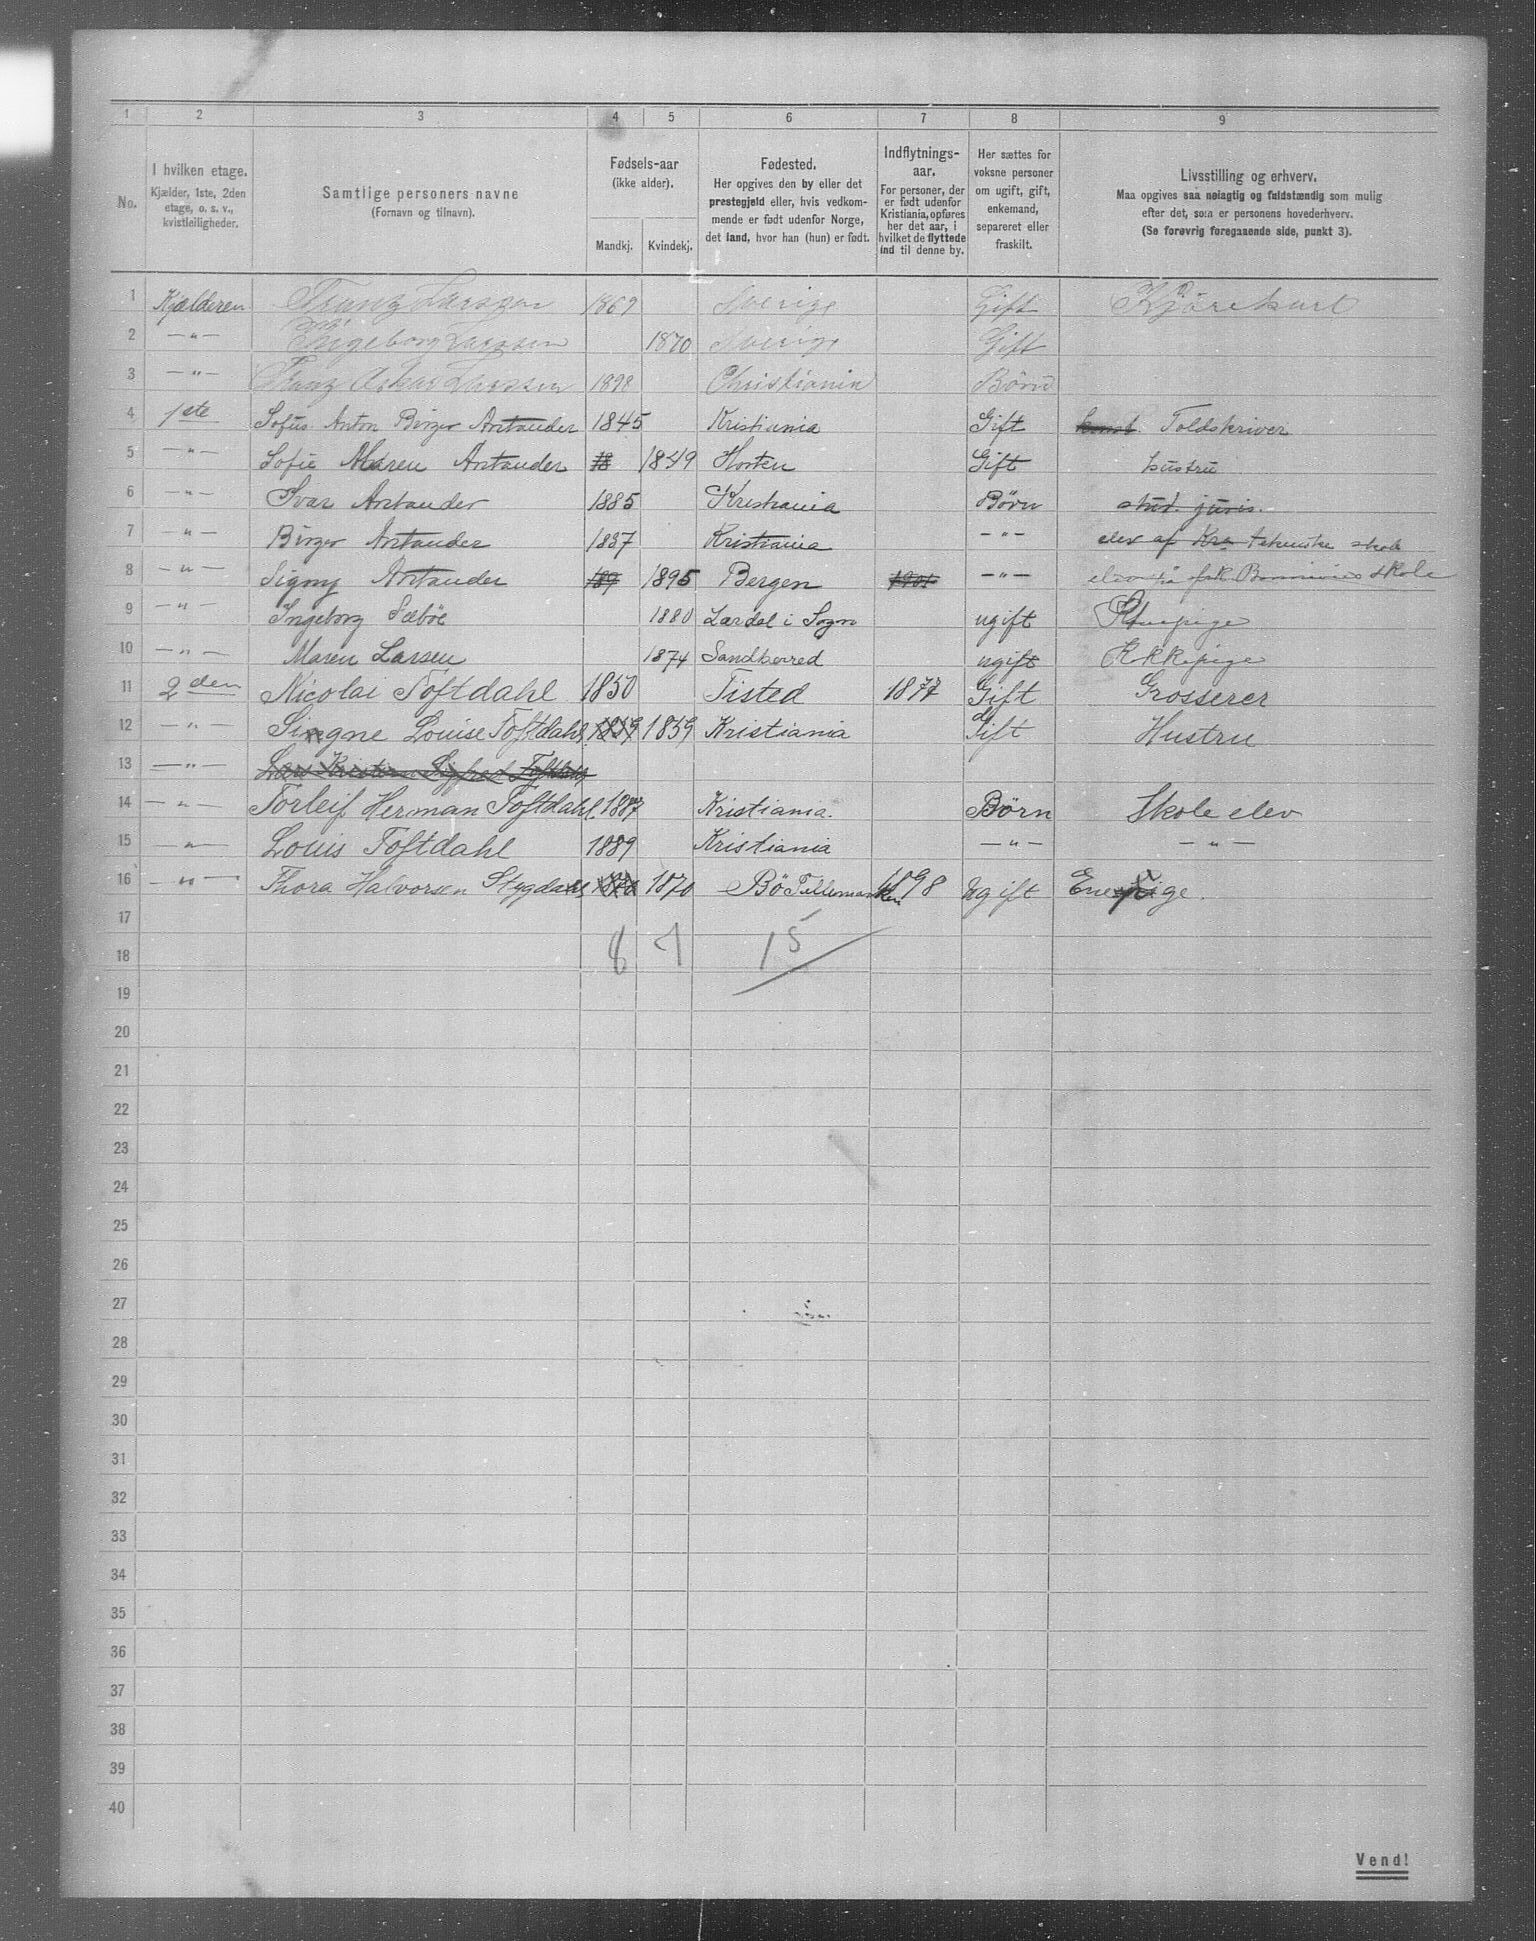 1 2 3 4 5 6 7 8 9
No.
I hvilken etage.
Kjælder, 1ste, 2den
etage, o. s. v.,
kvistleiligheder.
Samtlige personers navne
(Fornavn og tilnavn).
Fødsels-aar
(ikke alder).
Mandkj. Kvindekj.
Fødested.
Her opgives den by eller det
prestegjeld eller, hvis vedkom-
mende er født udenfor Norge,
det land, hvor han (hun) er født.
Indflytnings-
aar.
For personer, der
er født udenfor
Kristiania, opføres
her det aar, i
hvilket de flyttede
ind til denne by.
Her sættes for
voksne personer
om ugift, gift,
enkemand,
separeret eller
fraskilt.
Livsstilling og erhverv.
Maa opgives saa nøiagtig og fuldstændig som mulig
efter det, som er personens hovederhverv.
(Se forøvrig foregaaende side, punkt 3).
1 Kjælderen Franz Larsson 1869 Sverige Gift Kjørekarl
2 —"— Ingeborg Larssen 1870 Sverige Gift
3 —"— Franz Oskar Larssen 1898 Christiania Børn
4 1ste Sofus Anton Birger Arstander 1845 Kristiania Gift Toldskriver
5 —"— Sofie Maren Arstander 18 1849 Horten Gift hustru
6 —"— Ivar Arstander 1885 Kristiania Børn stud. juris.
7 —"— Birger Arstander 1887 Kristiania —"— elev af Kra tekniske skole
8 —"— Signy Arstander 189 1895 Bergen 1901 —"— skole
9 —"— Ingeborg Sæbøe 1880 Lærdal i Sogn ugift Stuepige
10 —"— Maren Larsen 1874 Sandherred ugift Kokkepige
11 2den Nicolai Toftdahl 1850 Tisted 1877 Gift Grosserer
12 —"— Singne Louise Toftdahl 1859 1859 Kristiania Gift Hustru
13 —"—
14 —"— Torleif Herman Toftdahl. 1887 Kristiania. Børn Skole elev
15 —"— Louis Toftdahl 1889 Kristiania —"— —"—
16 —"— Thora Halvorsen 1870 1870 Bø Tellemarken 1898 Ugift Enepige.
17
18 8 7 15
19
20
21
22
23
24
25
26
27
28
29
30
31
32
33
34
35
36
37
38
39
40
Vend!